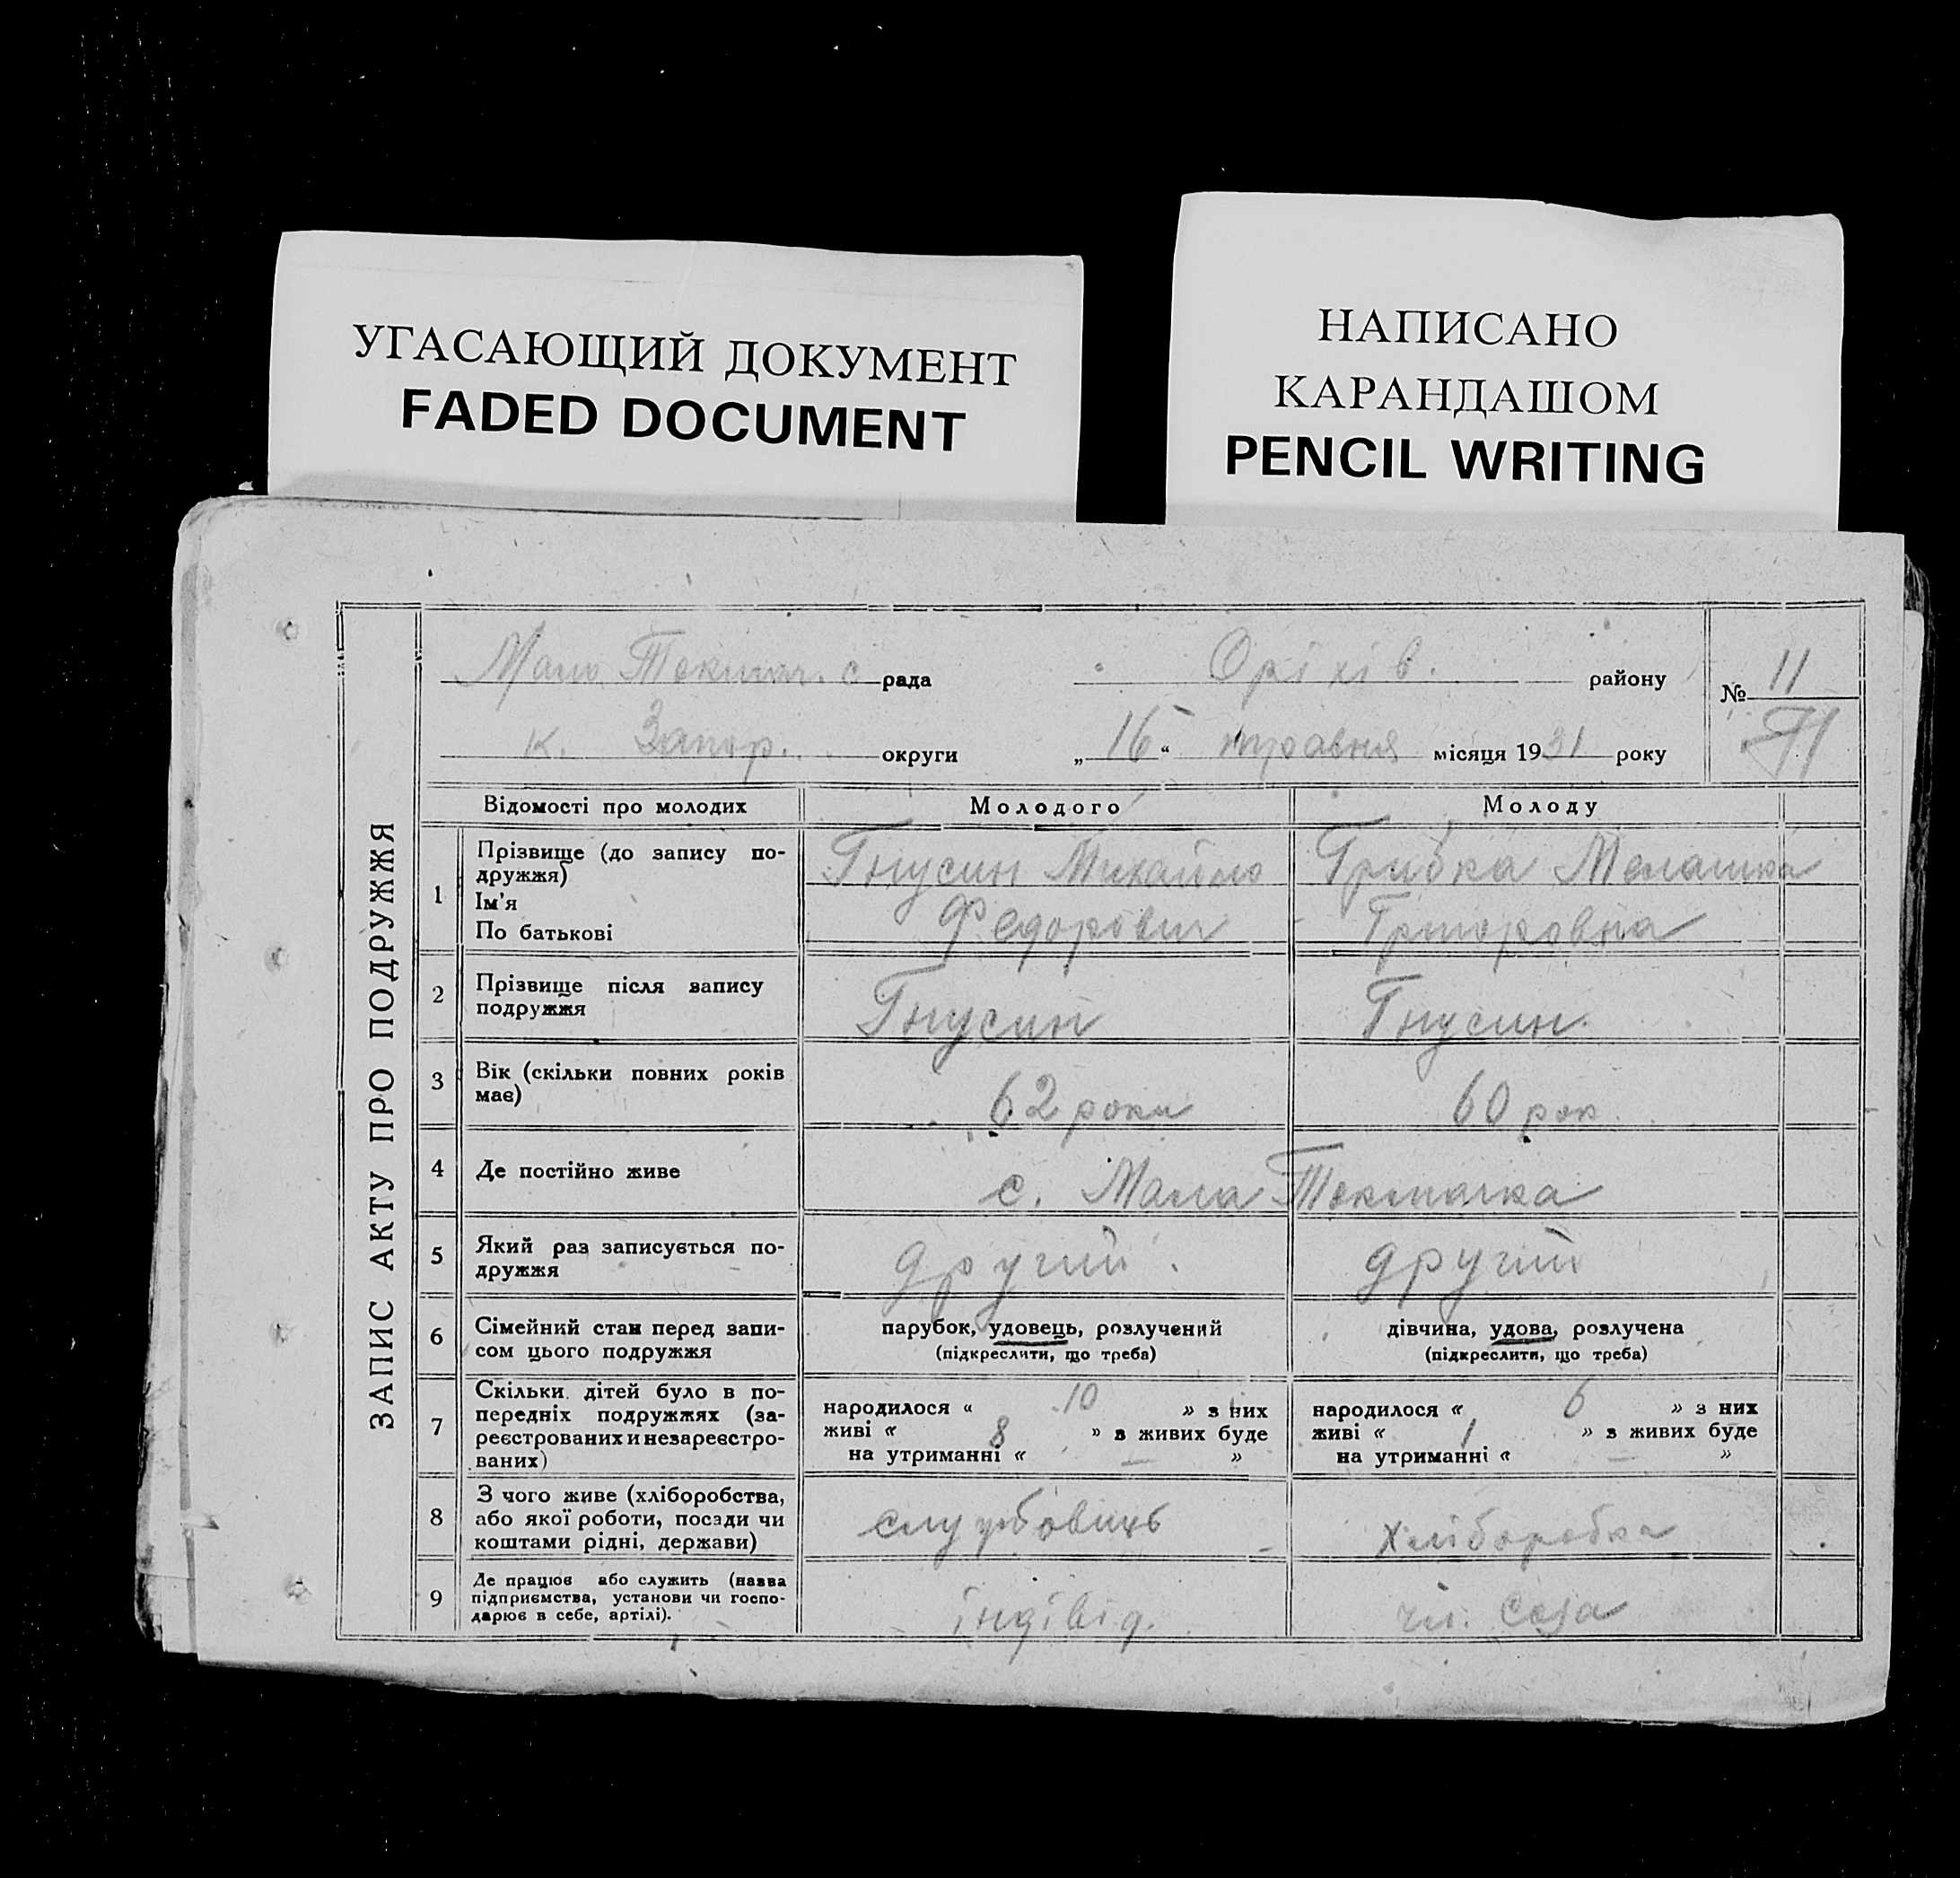 УГАСАЮЩИЙ ДОКУМЕНТ
FADED DOCUMENT
НАПИСАНО
КАРАНДАШОМ
PENCIL WRITING
ЗАПИС АКТУ ПРО ПОДРУЖЖЯ
Мало Токмач. с рада Оріхів. району № 11
к. Запор. округи „16“ травня місяця 1931 року
Відомості про молодих Молодого Молоду
1 Прізвище (до запису по-
дружжя)
Ім'я
По батькові
Гнусин Михайло
Федорович
Грибка Мелашка
Григоровна
2 Прізвище після запису
подружжя
Гнусин Гнусин.
3 Вік (скільки повних років
має)
62 роки 60 рок.
4 Де постійно живе с. Мала Токмачка
5 Який раз записується по-
дружжя
другий. другий
6 Сімейний стан перед запи-
сом цього подружжя
парубок, удовець, розлучений
(підкреслити, що треба)
дівчина, удова, розлучена
(підкреслити, що треба)
7 Скільки дітей було в по-
передніх подружжях (за-
реєстрованих и незареєстро-
ваних)
народилося « 10 » з них
живі « 8 » з живих буде
на утриманні « — »
народилося « 6 » з них
живі « 1 » з живих буде
на утриманні « — »
8 З чого живе (хліборобства,
або якої роботи, посади чи
коштами рідні, держави)
службовиць хліборобка
9 Де працює або служить (назва
підприємства, установи чи госпо-
дарює в себе, артілі).
індівід. чл.